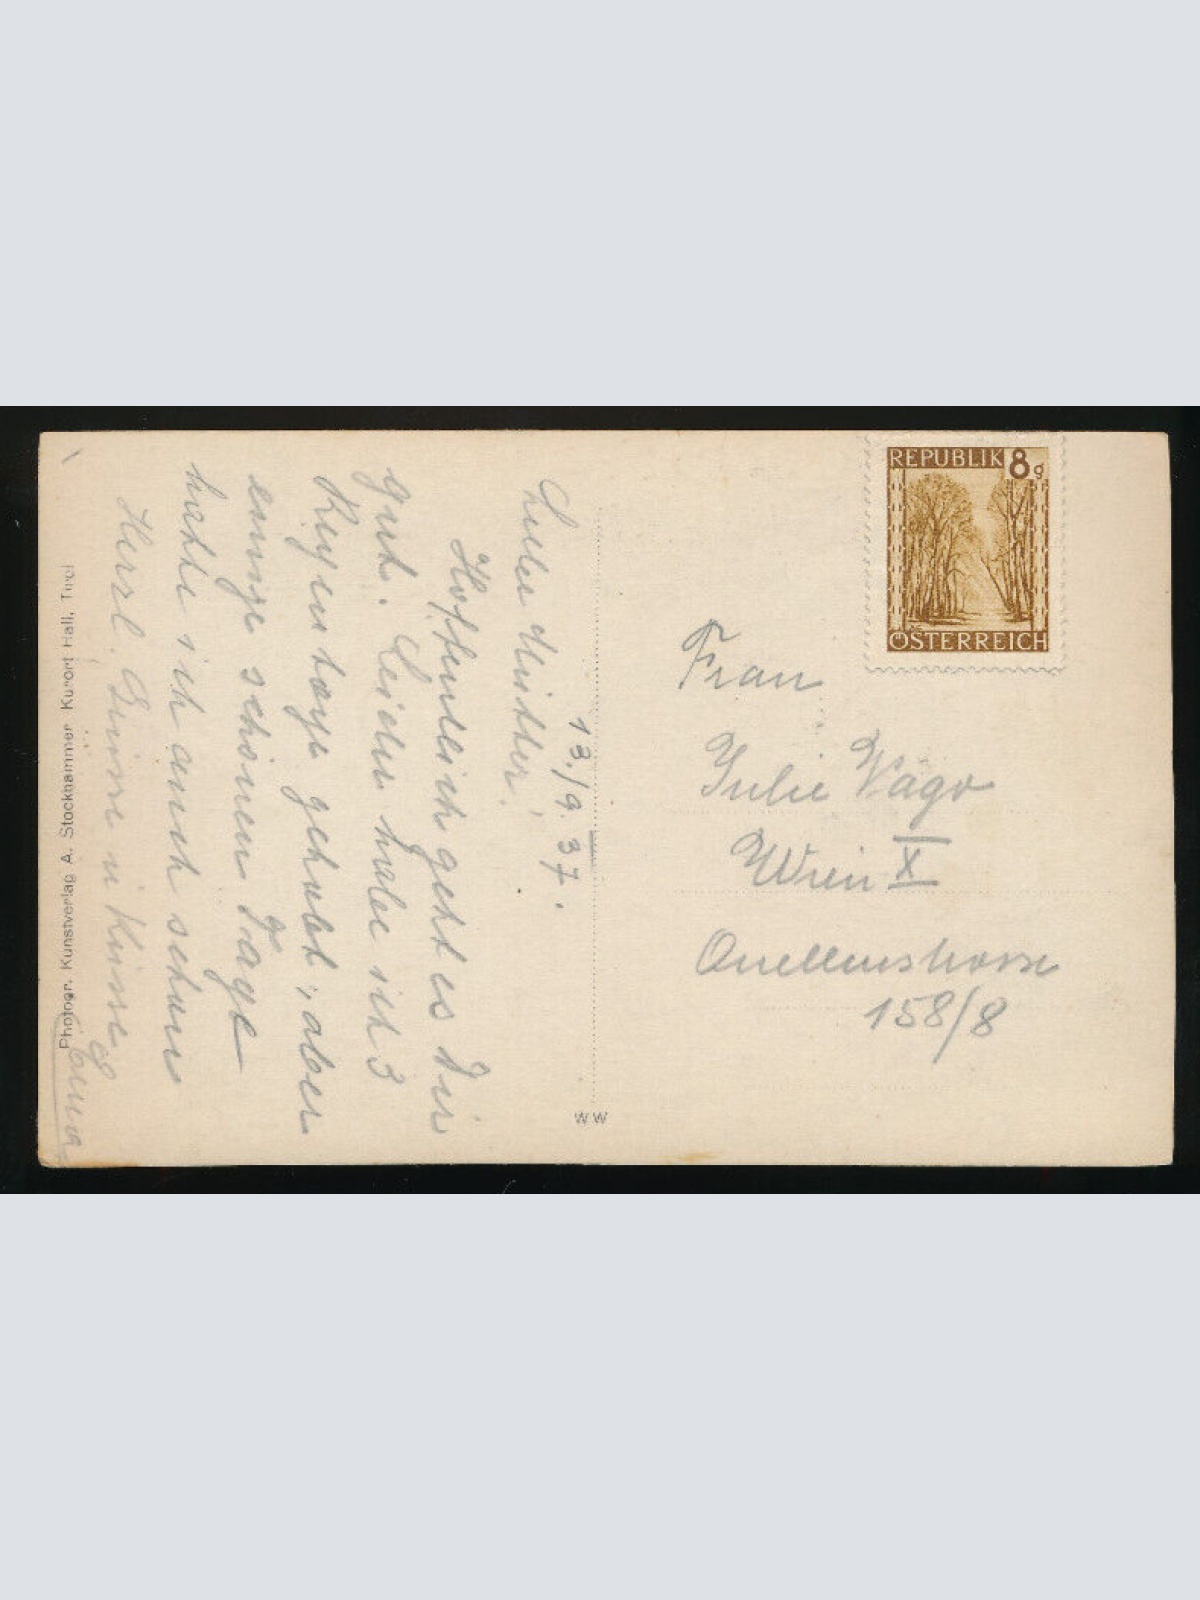 13./9. 37.
Liebe Mutter!
Hoffentlich geht es Dir
gut. Leider habe ich 3
Regentage gehabt, aber
einige schöne Tage
hatte ich auch schon
Herzl. Grüsse u Küsse
Photogr. Kunstverlag A. Stockhammer Kurort Hall, Tirol
WW
REPUBLIK 8g
ÖSTERREICH
Frau
Julie Vágo
Wien X
Quellenstrasse
158/8